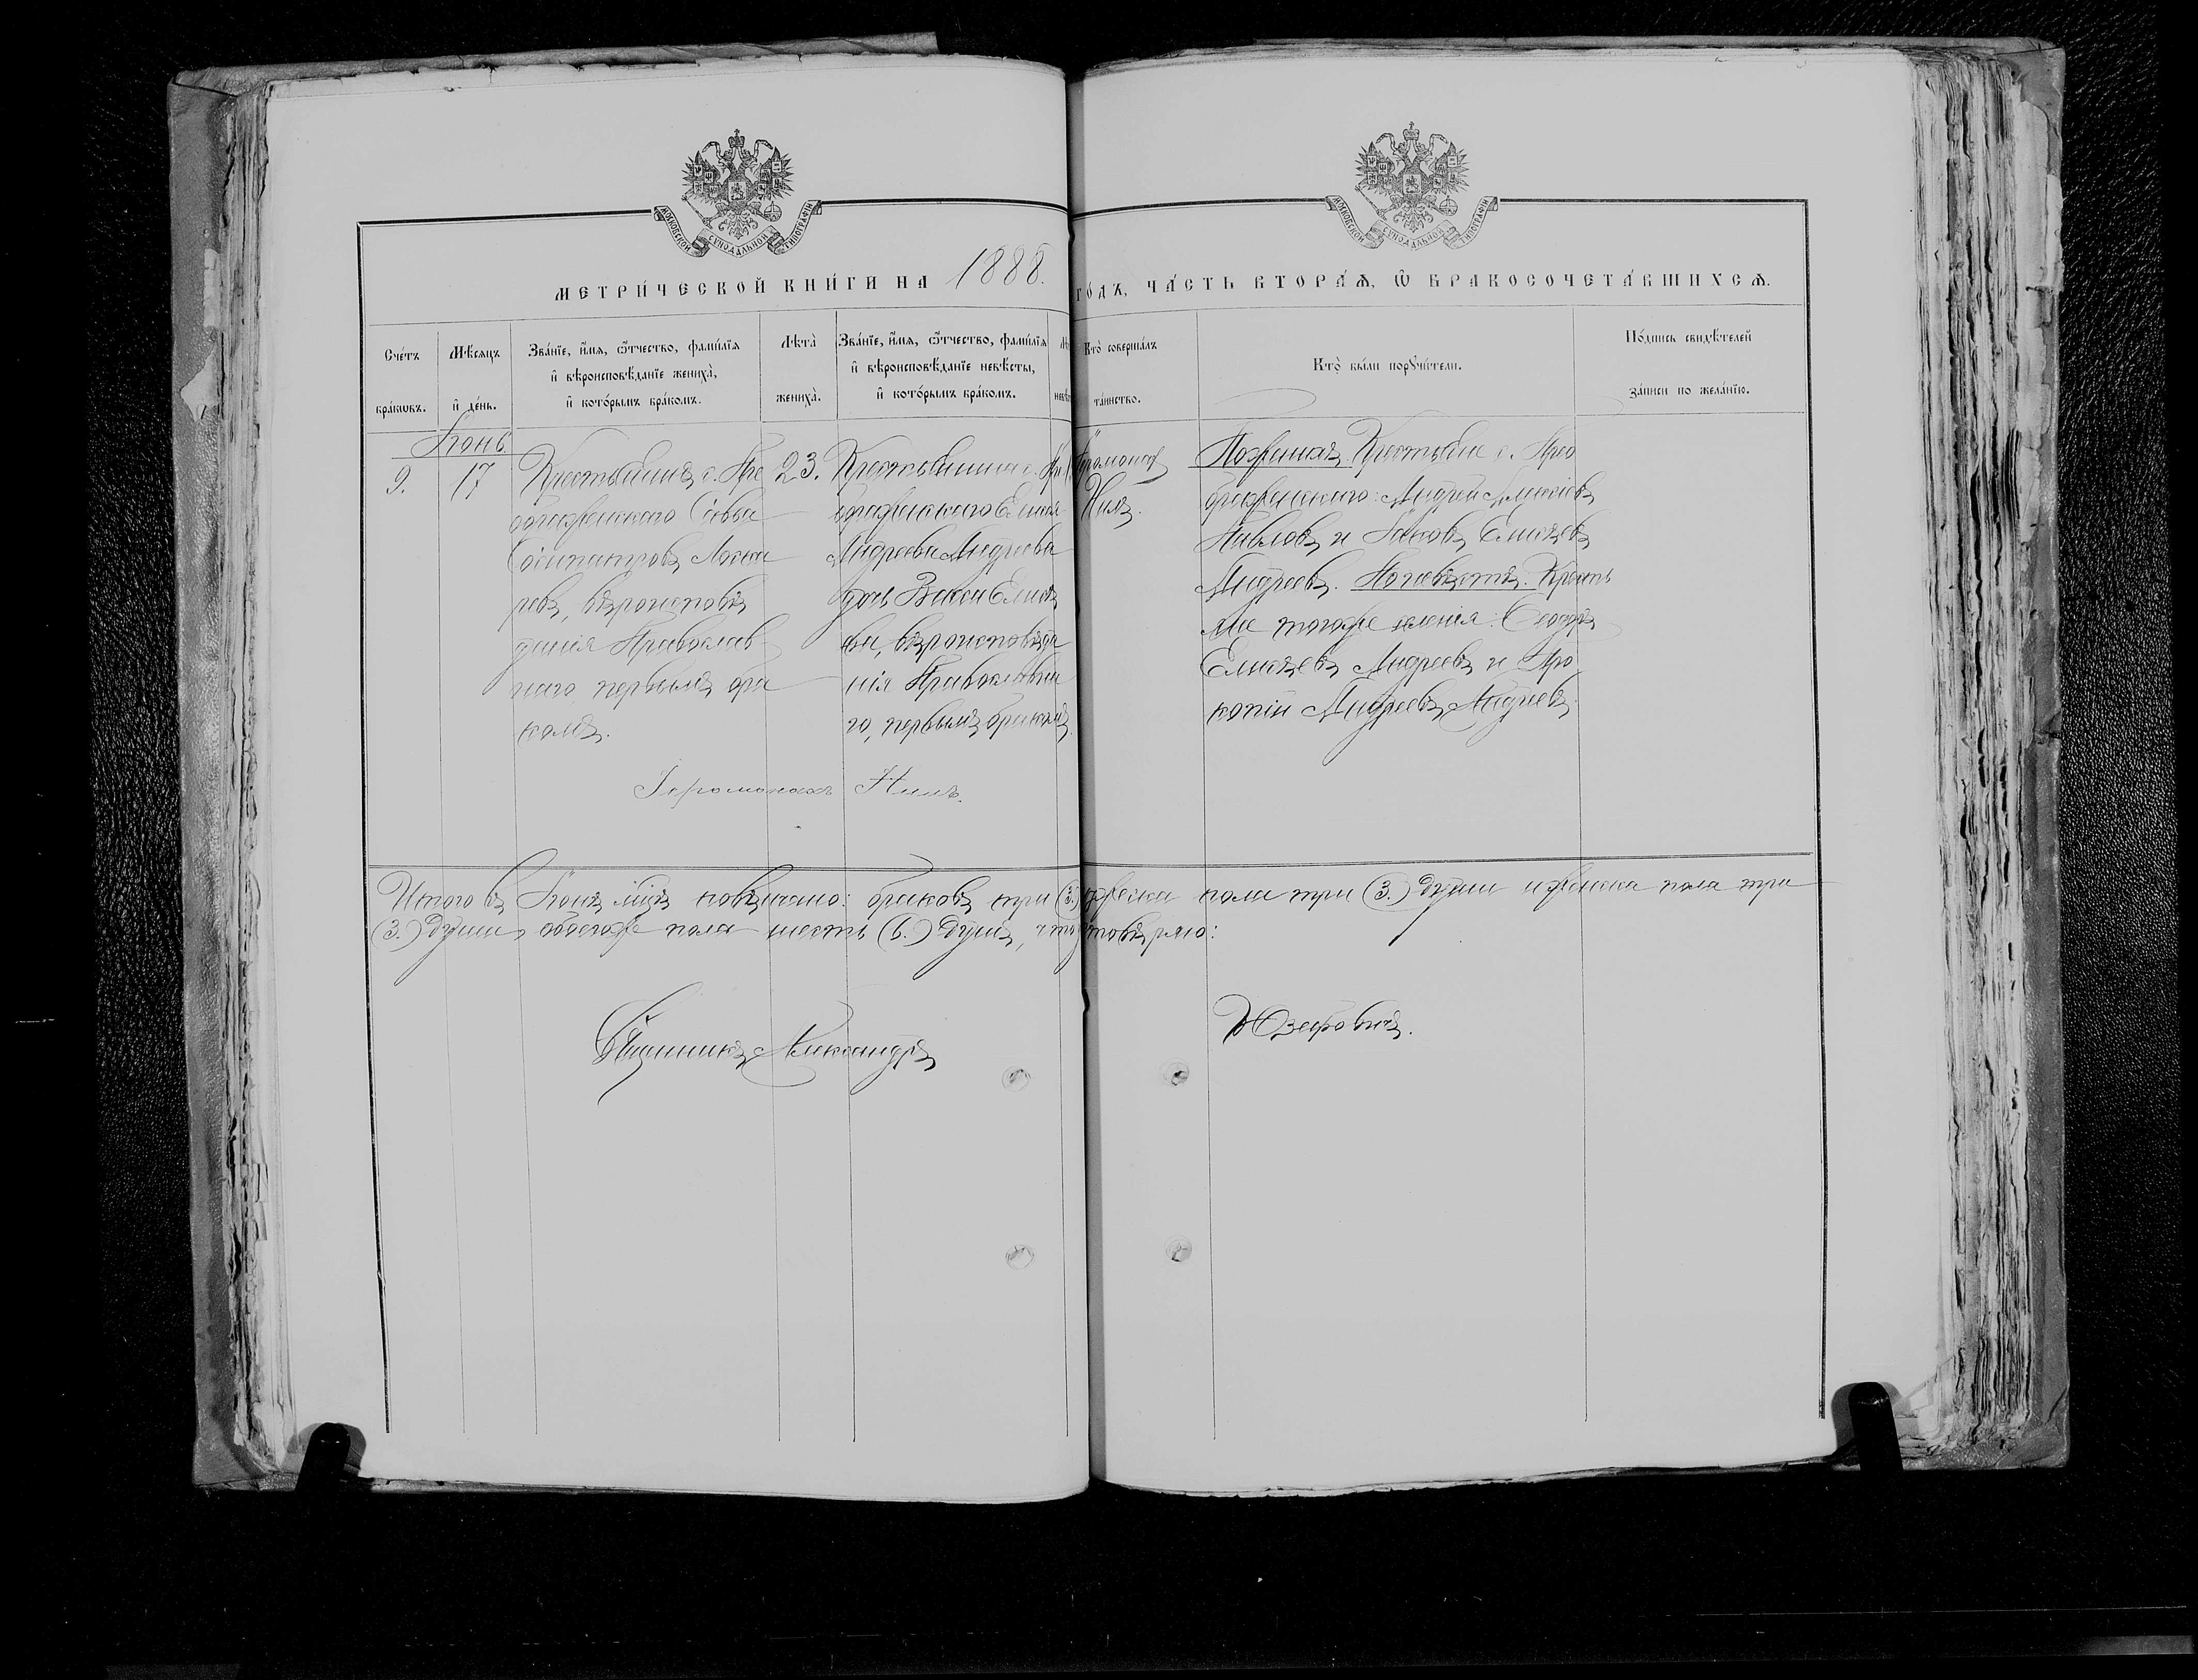 МОСКОВСКОЙ СѴНОДАЛЬНОЙ ТИПОГРАФІИ
МОСКОВСКОЙ СѴНОДАЛЬНОЙ ТИПОГРАФІИ
МЕТРИ́ЧЕСКОЙ КНИ́ГИ НА 1888. ГОДЪ, ЧА́СТЬ ВТОРА́Ѧ, Ѡ҆ БРАКОСОЧЕТА́ВШИХСѦ.
Сче́тъ бра́кѡвъ.
Мѣ́сѧцъ и҆ де́нь.
Зва́нїе, и҆́мѧ, ѻ҆́тчество, фами́лїѧ
и҆ вѣроисповѣ́данїе жениха̀,
и҆ кото́рымъ бра́комъ.
Лѣта̀
жениха̀.
Зва́нїе, и҆́мѧ, ѻ҆́тчество, фами́лїѧ
и҆ вѣроисповѣ́данїе невѣ́сты,
и҆ кото́рымъ бра́комъ.
Кто̀ соверша́лъ
та́инство.
Кто̀ бы́ли порꙋчи́тели.
По́дпись свидѣ́телей
за́писи по жела́нїю.
Іюнь.
9.
17
Крестьянинъ с. Пре
ображенскаго Савва
Сосипатровъ
ревъ, вѣроисповѣ
данія Православ
наго, первымъ бра
комъ.
23.
Крестьянина с. Пре
ображенскаго Елисея
Андреева Андреева
дочь Васса Елисѣ
ева, вѣроисповѣда
нія Православна
го, первымъ бракомъ.
Іеромонах
Нилъ.
По женихѣ: Крестьяне с. Прео
браженскаго: Андрей Алексѣевъ
Павловъ и Іаковъ Елисѣевъ
Андреевъ. По невѣстѣ: Крестья
не тогоже селенія: Ѳеодоръ
Елисѣевъ Андреевъ и Про
копій Андреевъ Андреевъ.
Іеромонахъ Нилъ.
Итого въ Іюнѣ мѣсцѣ повѣнчано: браковъ три (3.) мужеска пола три (3.) души и женска пола три
(3.) души, обоегоже пола шесть (6.) душъ, что
Священникъ Александръ Юзефовичъ.